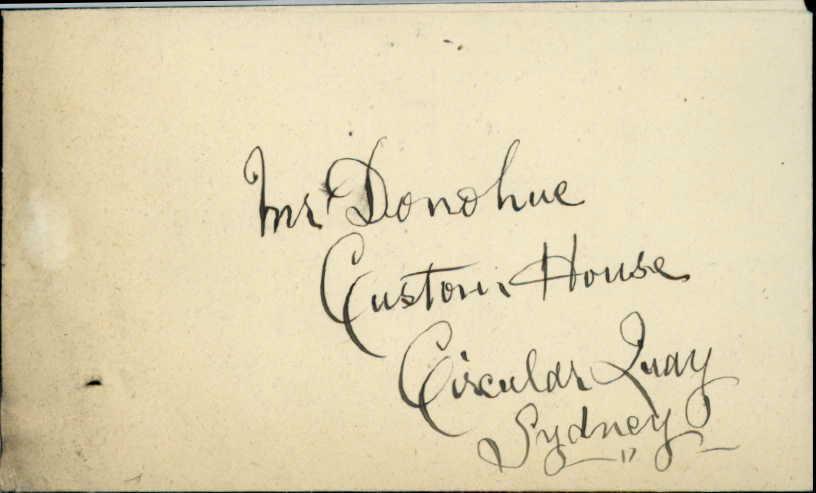 Mr Donohue
Custom House
Circular Quay
Sydney